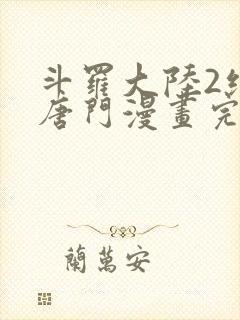 斗羅大陸2絕
唐門漫畫完
蘭萬安